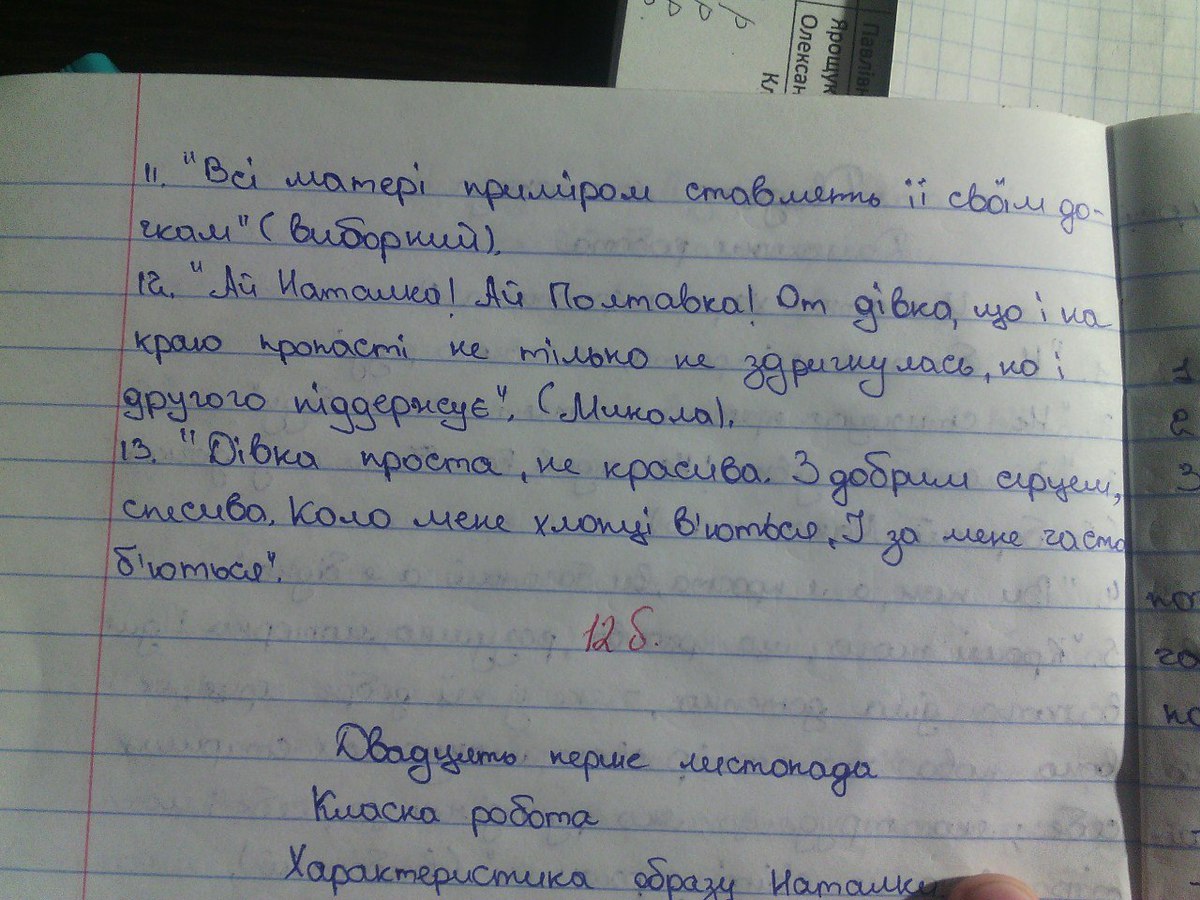 11. "Всі матері приміром ставлеть її своїм до-
чкам" (виборний).
12. "Ай Наталка! Ай Полтавка! От дівка, що і на
краю пропасті не тілько не здригнулась, но і
другого піддержує". (Микола).
13. "Дівка проста, не красива. З добрим серцем,
спесива. Коло мене хлопці в'ються, І за мене часто
б'ються".
12 б.
Двадцять перше листопада
Класна робота
Характеристика образу Наталки
Павлівн
Ярощук
Олексан
Кл
1
2
3